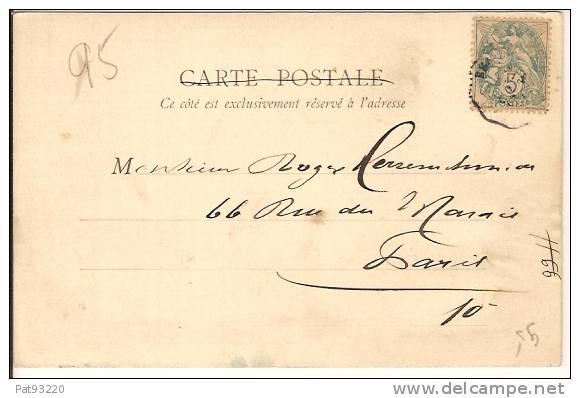 95
CARTE POSTALE
Ce côté est exclusivement réservé à l'adresse
5
Monsieur Roger
66 Rue du Marais
Paris
10
95
Pat93220
delcampe.net